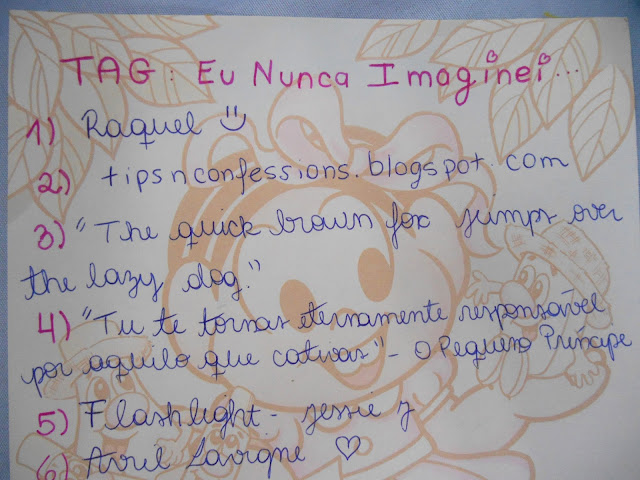 TAG: Eu Nunca Imaginei...
1) Raquel
2) tipsnconfessions.blogspot.com
3) "The quick brown fox jumps over
the lazy dog."
4) "Tu te tornas eternamente responsável
por aquilo que cativas" - O Pequeno Príncipe
5) Flashlight - Jessie J
6) Avril Lavigne ♡